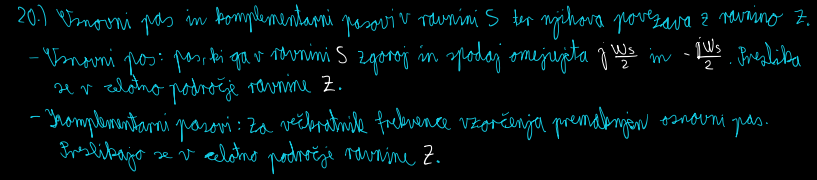 20.) Osnovni pas in komplementarni pasovi v ravnini S ter njihova povezava z ravnino Z.
- Osnovni pas: pas, ki ga v ravnini S zgoraj in spodaj omejujeta j ωs/2 in -jωs/2. Preslika
se v celotno področje ravnine Z.
- Komplementarni pasovi: Za večkratnik frekvence vzorčenja premaknjen osnovni pas.
Preslikajo se v celotno področje ravnine Z.